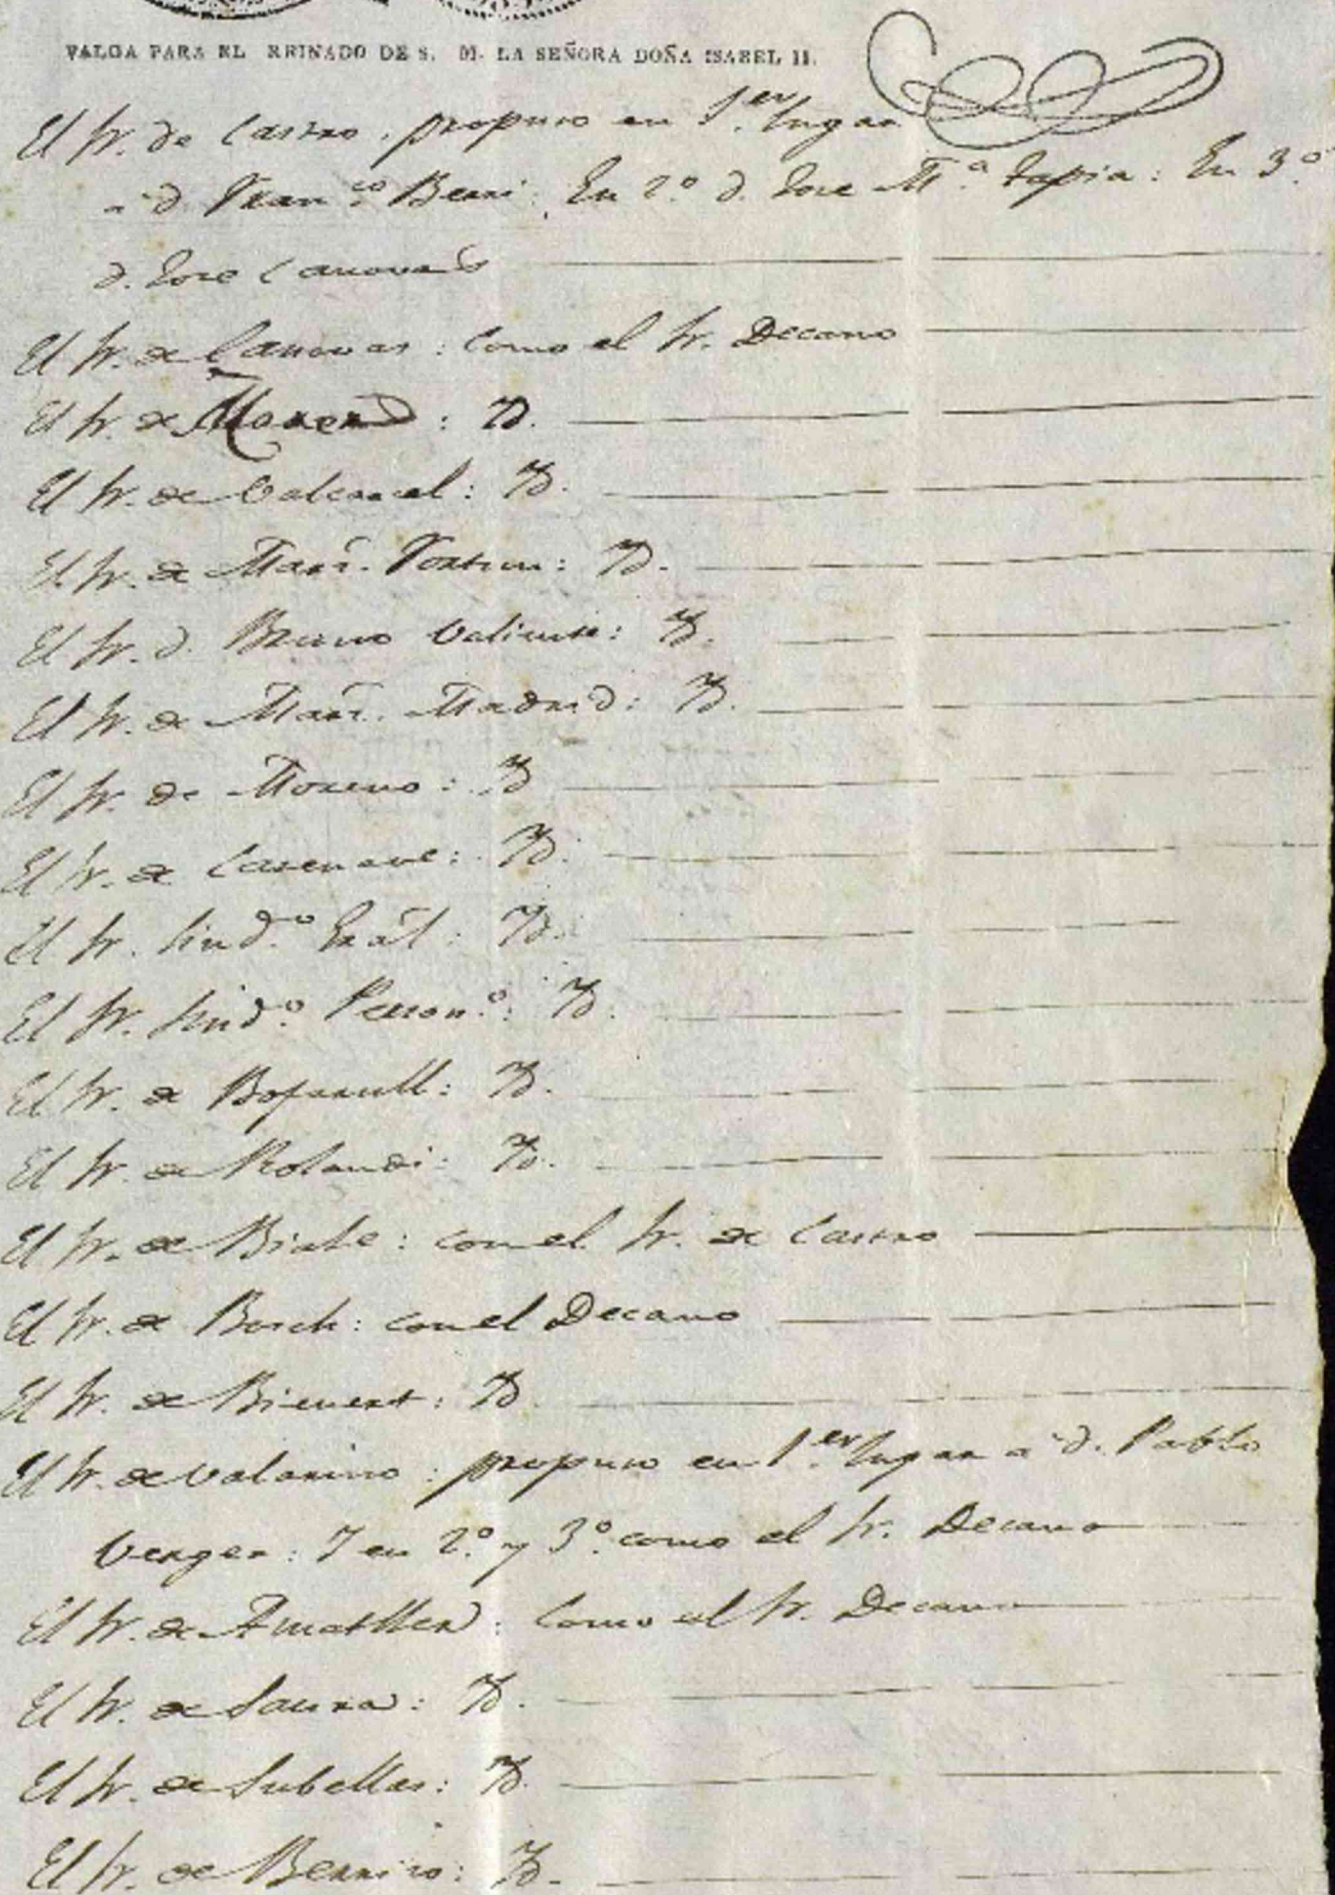 VALGA PARA EL REINADO DE S. M. LA SEÑORA DOÑA ISABEL II.
El Sr. de Castro, propuso en 1.er lugar
a d. Fran.co Berri: En 2.º d. Jose M.a Tapia: En 3.º
d. Jose Canovas
El Sr. de Canovas: Como el Sr. Decano
El Sr. de : Yd.
El Sr. de Valcarcel: Yd.
El Sr. de Marz. Fortun: Yd.
El Sr. d. Bruno Valiente: Yd.
El Sr. de Marz. Madrid: Yd.
El Sr. de Moreno: Yd
El Sr. de Casenave: Yd.
El Sr. Sind.º Gral: Yd.
El Sr. Sind.º Person.º: Yd.
El Sr. de Bofarull: Yd.
El Sr. de Rolandi: Yd.
El Sr. de Biale: con el Sr. de Castro
El Sr. de Bosch: con el Decano
El Sr. de Bienert: Yd
El Sr. de Valarino: propuso en 1.er lugar a d. Pablo
Verger: Y en 2.º y 3.º como el Sr. Decano
El Sr. de Amatller: Como el Sr. Decano
El Sr. de Saura: Yd.
El Sr. de Subellas: Yd.
El Sr. de Berrizo: Yd.